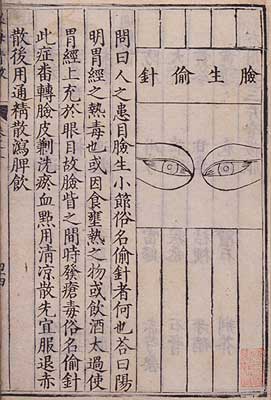 臉生偷針
問曰人之患目臉生小癤俗名偷針者何也荅曰陽
明胃經之熱毒也或因食壅熱之物或飲酒太過使
胃經上充於眼目故臉眥之間時發瘡毒俗名偷針
此症番轉臉皮劆洗瘀血㸃用清凉散先宜服退赤
散後用通精散瀉脾飲